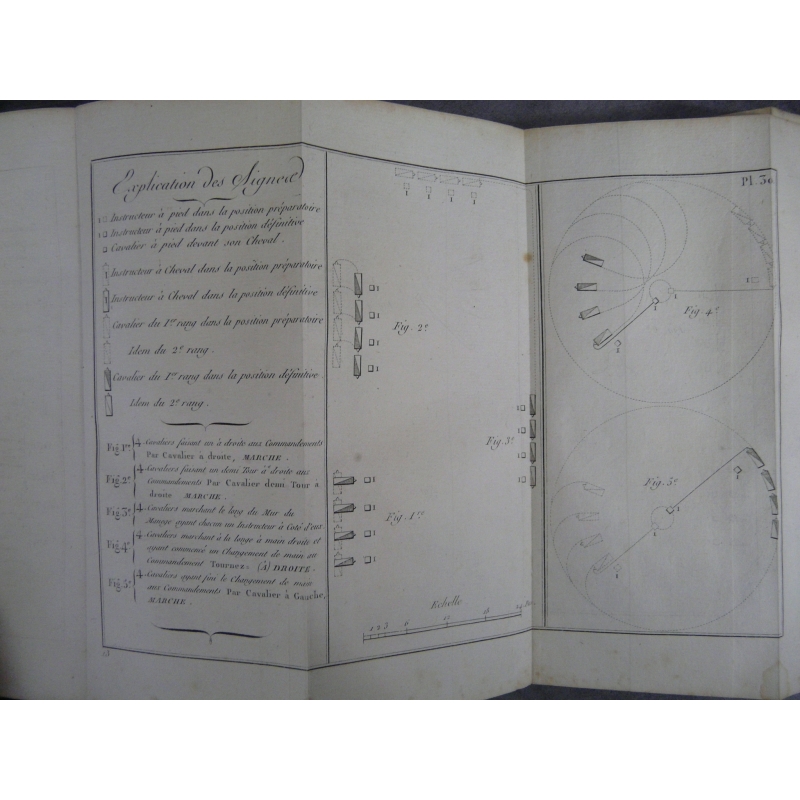 Explication des Signes
1 Instructeur à pied dans la position préparatoire
1 Instructeur à pied dans la position définitive
Cavalier à pied devant son Cheval.
1 Instructeur à Cheval dans la position préparatoire
1 Instructeur à Cheval dans la position définitive
Cavalier du 1er rang dans la position préparatoire
Idem du 2e rang.
Cavalier du 1er rang dans la position définitive.
Idem du 2e rang.
Fig. 1re 4 Cavaliers faisant un à droite aux Commandements
Par Cavalier à droite, MARCHE.
Fig. 2e 4 Cavaliers faisant un demi Tour à droite aux
Commandements Par Cavalier demi Tour à
droite MARCHE.
Fig. 3e 4 Cavaliers marchant le long du Mur du
Manege ayant chacun un Instructeur à Coté d'eux
Fig. 4e 4 Cavaliers marchant à la longe à main droite et
ayant commencé un Changement de main au
Commandement Tournez = (à) DROITE.
Fig. 5e 4 Cavaliers ayant fini le Changement de main
aux Commandements Par Cavalier à Gauche,
MARCHE.
Fig. 2e
Fig. 3e
Fig. 1re
Echelle
1 2 3 6 12 18 24
Pl. 3
Fig. 4e
Fig. 5e